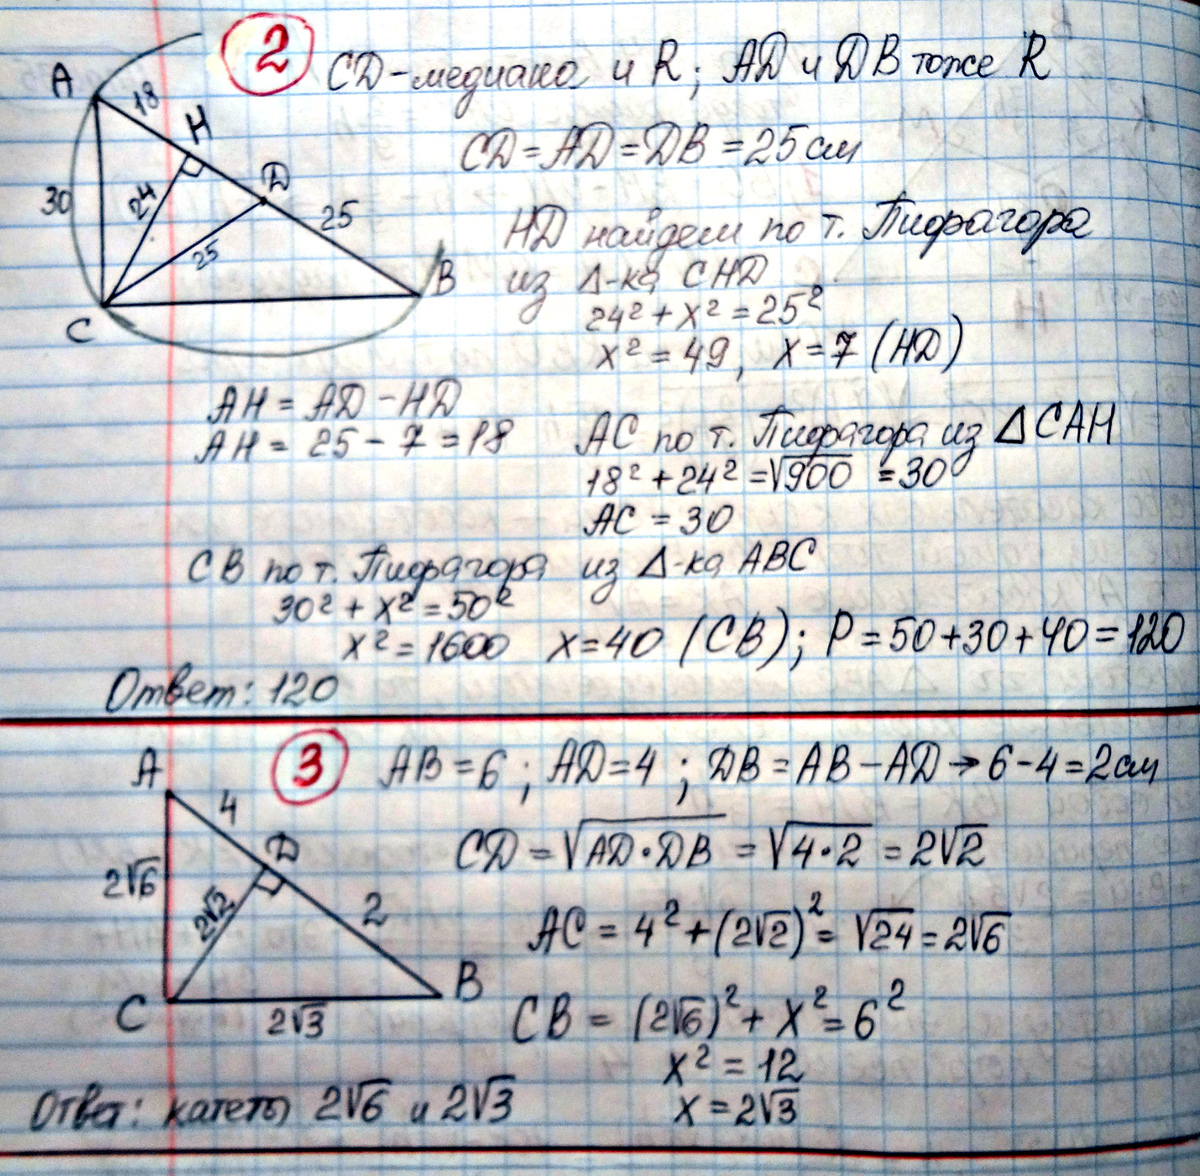 2
CD-медиана и R; AD и DB тоже R
CD=AD=DB=25см
A
18
H
D
30
24
25
25
B
C
HD найдем по т. Пифагора
из Δ-ка CHD
24²+x²=25²
x²=49, x=7 (HD)
AH=AD-HD
AH=25-7=18
AC по т. Пифагора из ΔCAH
18²+24²=√900=30
AC=30
CB по т. Пифагора из Δ-ка ABC
30²+x²=50²
x²=1600 x=40 (CB); P=50+30+40=120
Ответ: 120
3
AB=6; AD=4; DB=AB-AD→6-4=2см
A
4
D
2√6
2√2
2
C
B
2√3
CD=√AD·DB=√4·2=2√2
AC=4²+(2√2)²=√24=2√6
CB=(2√6)²+x²=6²
x²=12
x=2√3
Ответ: катеты 2√6 и 2√3